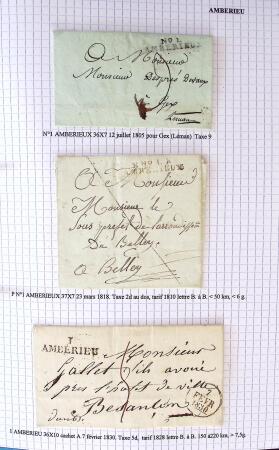 AMBERIEU
No 1.
AMBERIEUX
A Monsieur
Monsieur
à Gex
Léman
N°1 AMBERIEUX 36X7 12 juillet 1805 pour Gex (Léman) Taxe 9
P No 1. P
AMBERIEUX
A Monsieur
Monsieur le
Sous préfet de
De Belley.
à Belley
P N°1 AMBERIEUX 37X7 23 mars 1818. Taxe 2d au dos, tarif 1810 lettre B. à B. < 50 km, < 6 g.
1
AMBÉRIEU
Monsieur
fils avoué
près l'hotel de ville
FEVR
1830
1 AMBERIEU 36X10 cachet A 7 février 1830. Taxe 5d, tarif 1828 lettre B. à B. 150 à 220 km, > 7,5g.